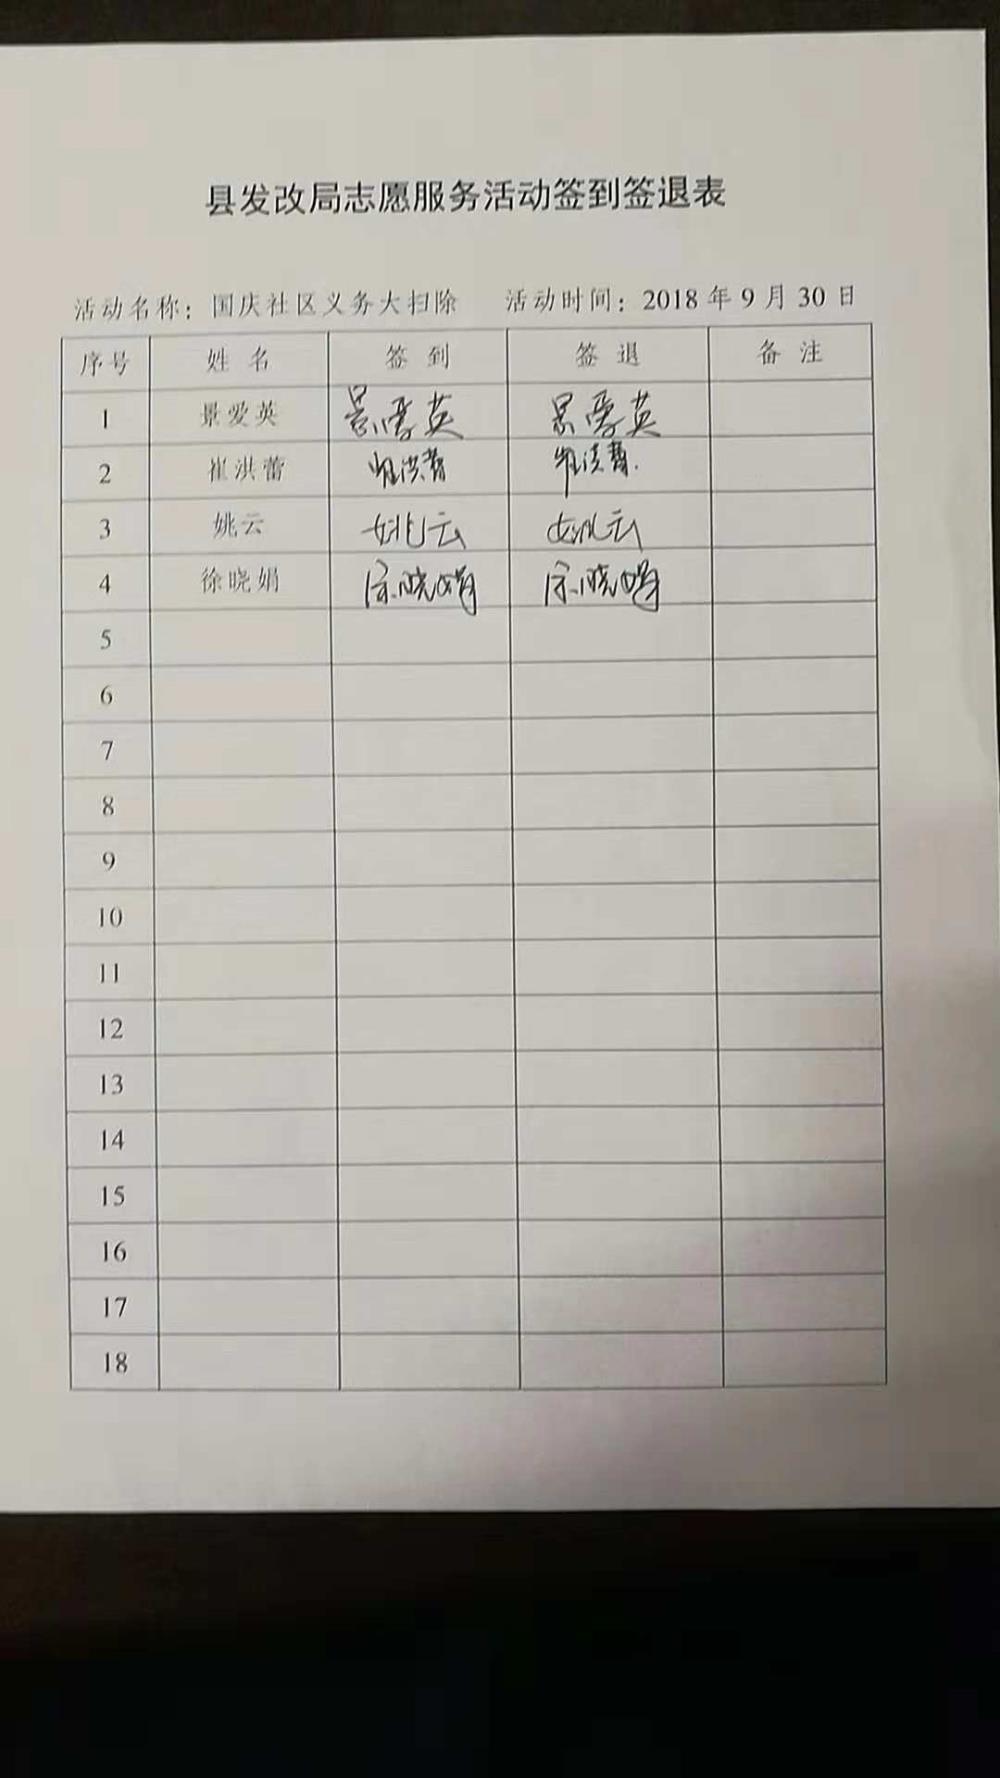 县发改局志愿服务活动签到签退表
活动名称：国庆社区义务大扫除 活动时间：2018年9月30日
序号 姓名 签到 签退 备注
1 景爱英 景爱英 景爱英
2 崔洪蕾 崔洪蕾 崔洪蕾
3 姚云 姚云 姚云
4 徐晓娟 徐晓娟 徐晓娟
5
6
7
8
9
10
11
12
13
14
15
16
17
18